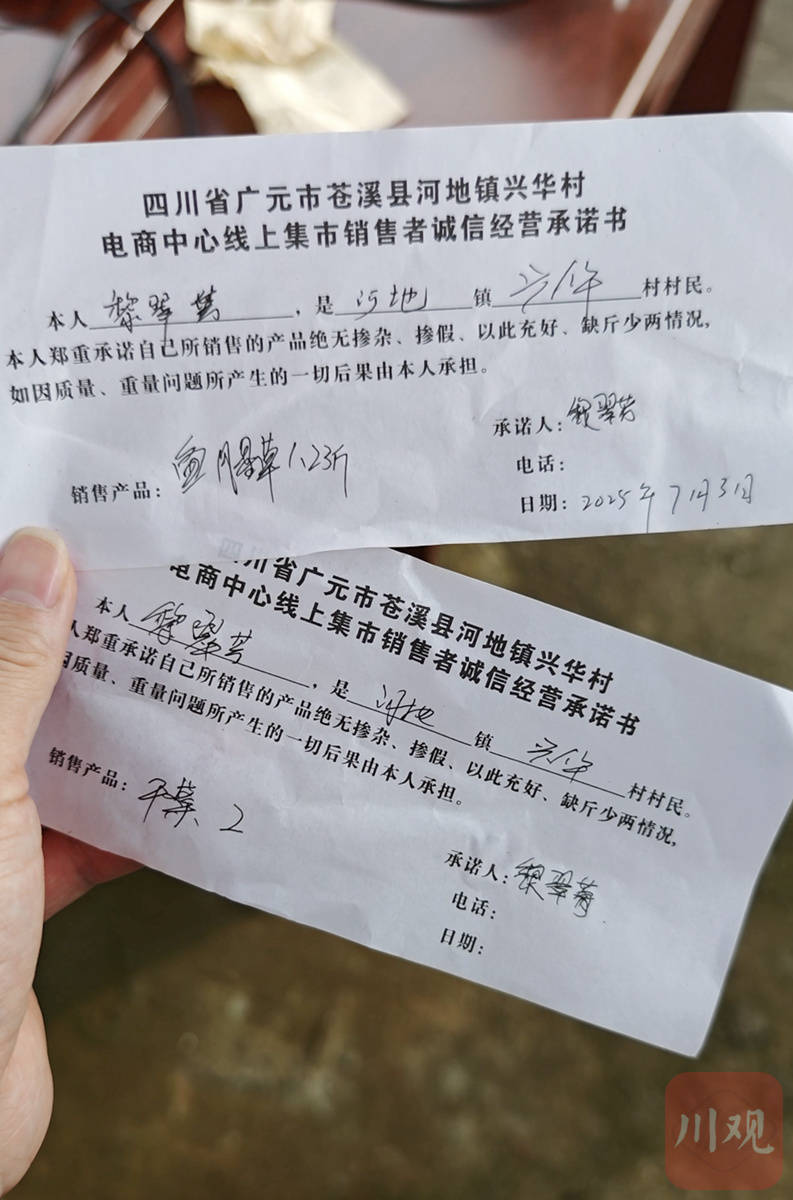 四川省广元市苍溪县河地镇兴华村
电商中心线上集市销售者诚信经营承诺书
本人黎翠芳,是河地镇兴华村村民。
本人郑重承诺自己所销售的产品绝无掺杂、掺假、以此充好、缺斤少两情况,
如因质量、重量问题所产生的一切后果由本人承担。
承诺人:黎翠芳
电话:
销售产品:鱼腥草1.23斤
日期:2025年7月31日
四川省广元市苍溪县河地镇兴华村
电商中心线上集市销售者诚信经营承诺书
本人黎翠芳,是河地镇兴华村村民。
人郑重承诺自己所销售的产品绝无掺杂、掺假、以此充好、缺斤少两情况,
因质量、重量问题所产生的一切后果由本人承担。
销售产品:干菜 2
承诺人:黎翠芳
电话:
日期:
川观